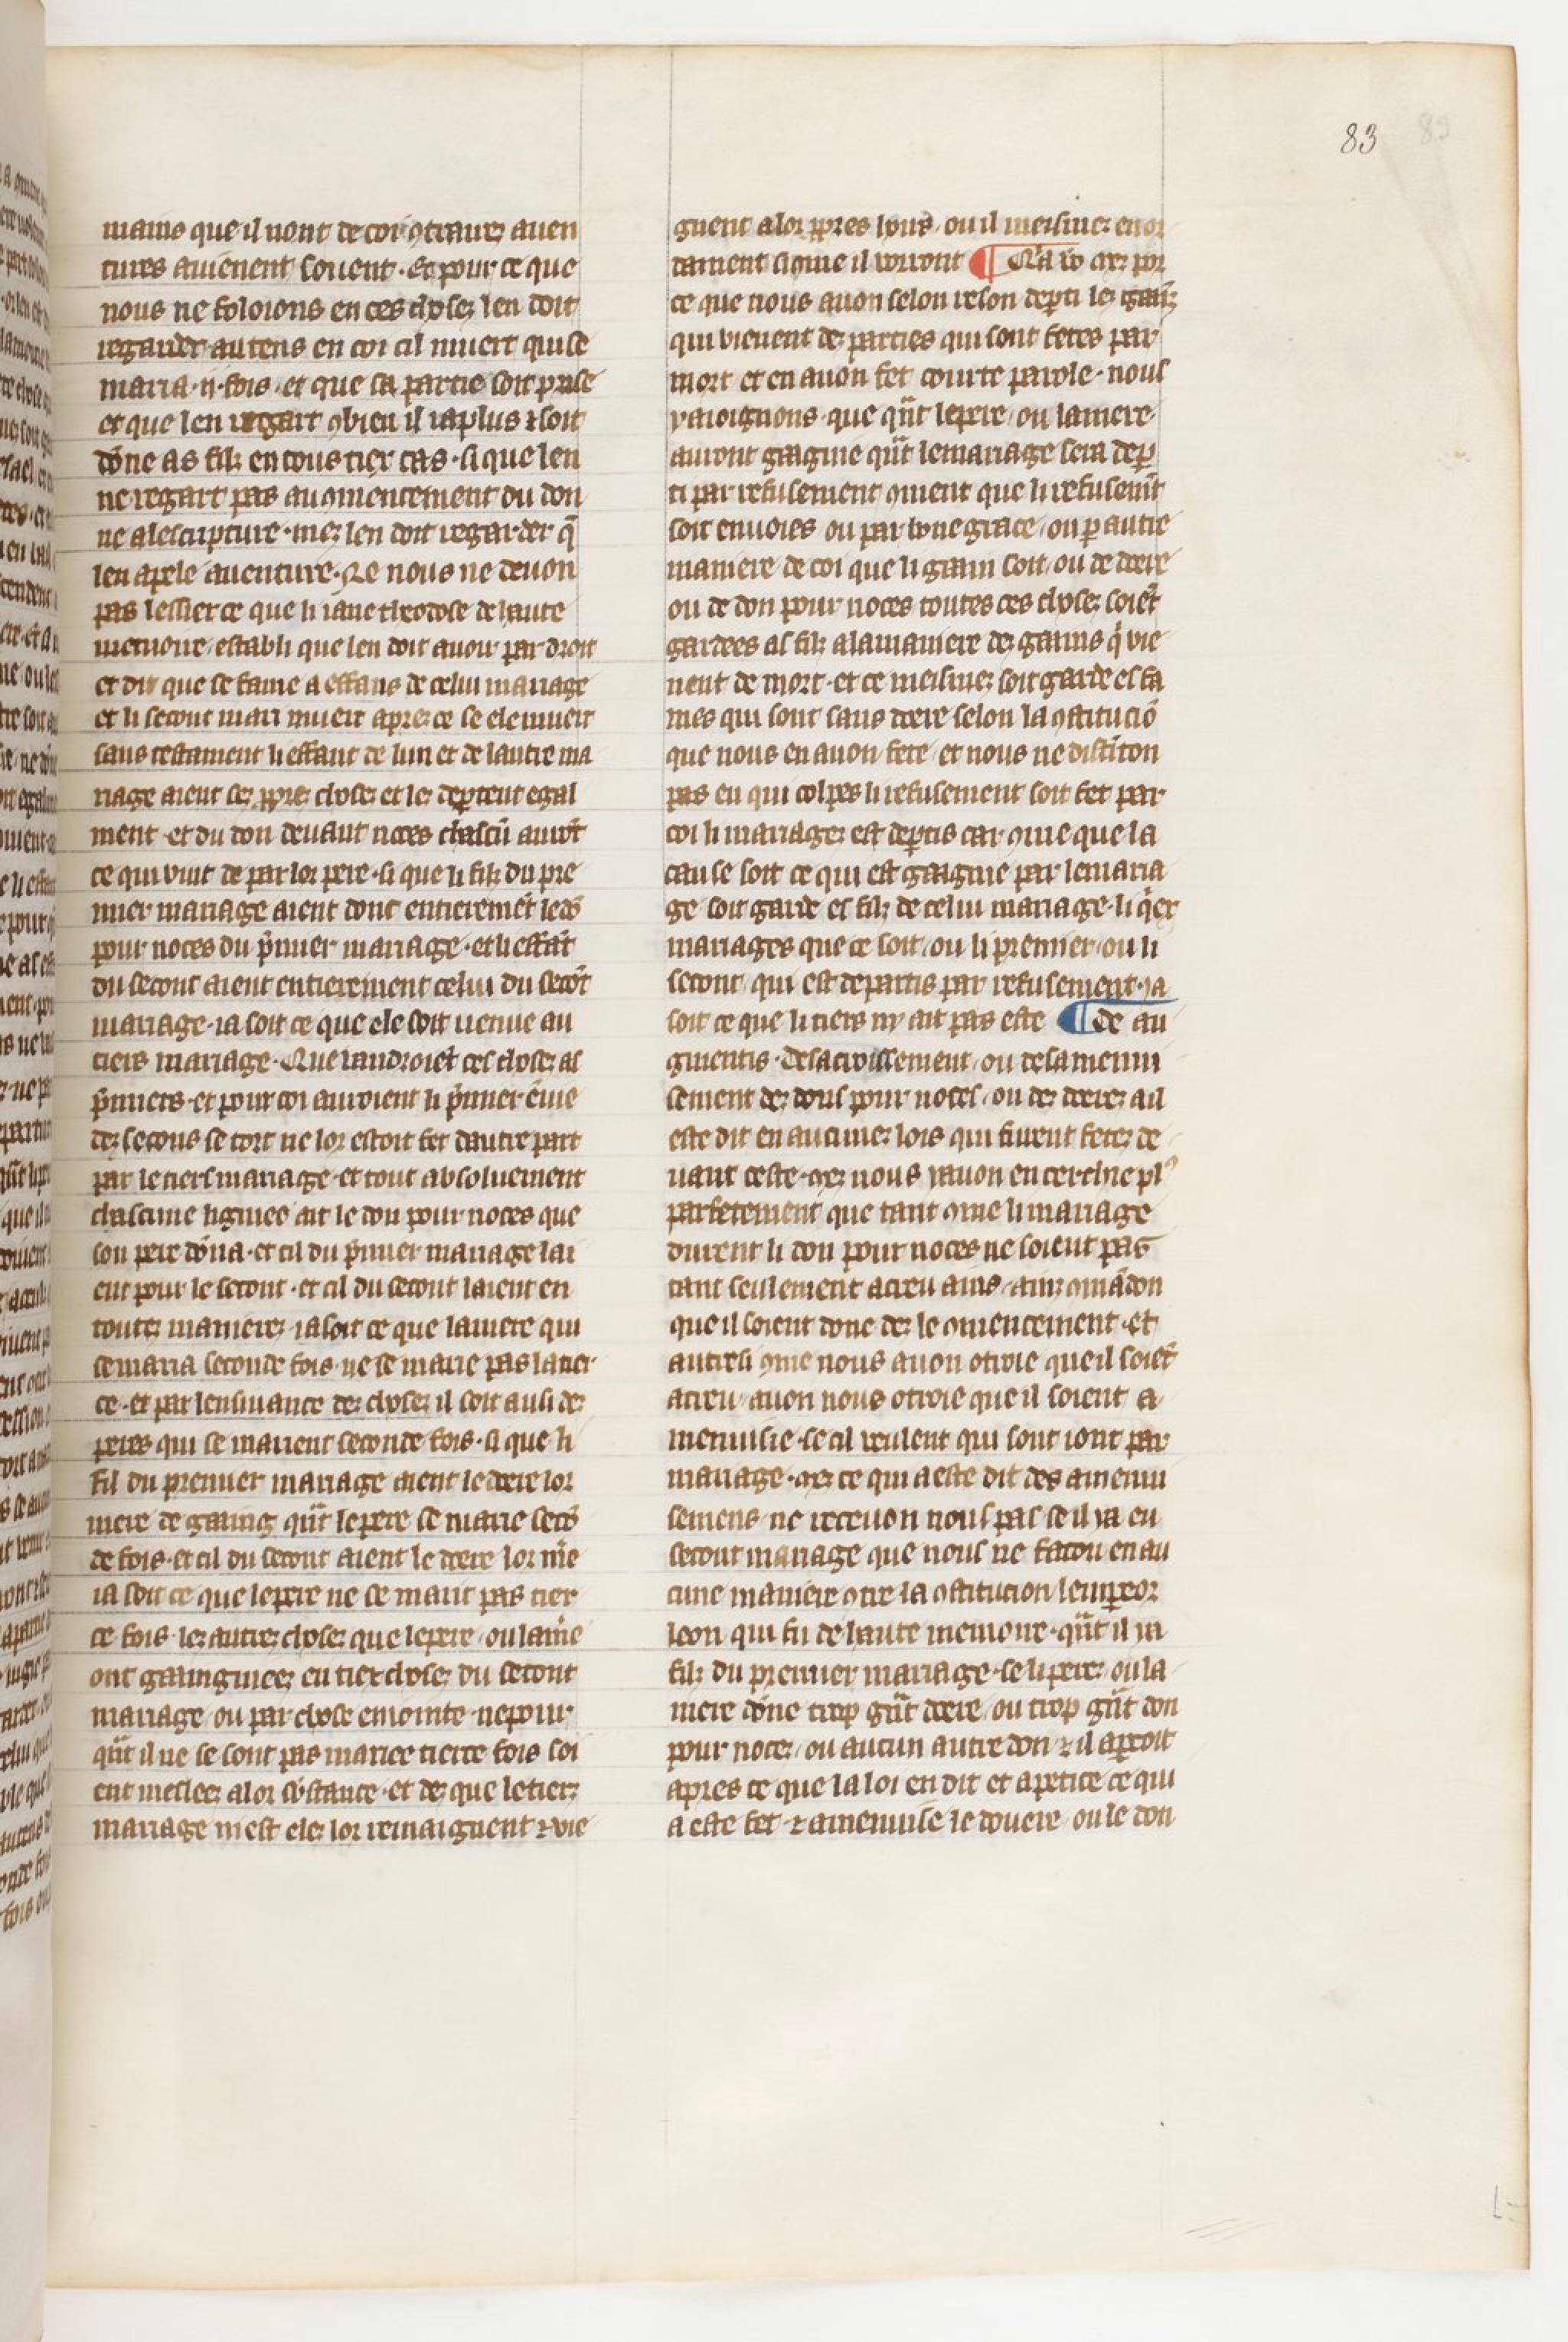 83
mains que il nont de coi ꝯtraires auen
tures auienent souent · Et pour ce que
nous ne foloions en ces choses len doit
regarder au tens en coi cil muert qui se
maria · ij · fois · et que sa partie soit prise
et que len regart ꝯbien il ia plus ⁊ soit
dōne as filz en tous tiex cas · si que len
ne regart pas au ꝯmencement du don
ne alescripture · mez len doit regarder q̄
len apele auenture · Ne nous ne deuon
pas lessier ce que li iane theodose de haute
memoire establi que len doit auoir par droit
et dit que se fame a effans de celui mariage
et li secont mari muert apres ce se ele muert
sans testament li effant de lun et de lautre ma
riage aient sez ꝓpres choses et les deꝑtent egal
ment · et du don deuant noces chascū auro᷑t
ce qui vint de par lor pere · si que li filz du pre
mier mariage aient donc entieremēt le dō
pour noces du p̄mier mariage · et li effāt
du secont aient entierement celui du secōt
mariage · ia soit ce que ele soit uenue au
tiers mariage · Que vaudroiēt ces choses as
p̄miers · et pour coi auroient li p̄mier ēuie
des secons se tort ne lor estoit fet dautre part
par le tiers mariage · et tout absoluement
chascune lignee ait le don pour noces que
son pere dōna · et cil du p̄mier mariage lai
ent pour le secont · et cil du secont laient en
toutes manieres · ia soit ce que la mere qui
se maria seconde fois · ne se marie pas la tier
ce · et par lensiuance des choses il soit ausi des
peres qui se marient seconde fois · si que li
fil du premier mariage aient le doere lor
mere de gaaing qn̄t le pere se marie secō
de fois · et cil du secont aient le doere lor me
ia soit ce que le pere ne se marit pas tier
ce fois · les autres choses que le pere ou la me
ont gaaingniees en tiex choses du secont
mariage ou par chose eniointe · nepour
qn̄t il ne se sont pas mariee tierce fois soi
ent meslees a lor sb̄stance · et des que le tierz
mariage niest eles lor remaignent ⁊ vie
gnent a lor ꝓpres hoirs · ou il meismes en or
denent si ꝯme il vorront ¶ Qīa vo mez por
ce que nous auon selon reson deꝑti les gaāz
qui vienent des parties qui sont fetes par
mort et en auon fet courte parole · nous
y aioignons · que qn̄t le pere ou la mere
auront gaagnie qn̄t le mariage sera deꝑ
ti par refusement ꝯment que li refusemt̄
soit enuoies ou par bone grace ou ꝑ autre
maniere de coi que li gaain soit ou de doere
ou de don pour noces toutes ces choses soiēt
gardees as filz a la maniere des gaains q̄ vie
nent de mort · et ce meismes soit garde es fa
mes qui sont sans doere selon la ꝯstituciō
que nous en auon fete · et nous ne distiton
pas en qui colpes li refusement soit fet par
coi li mariages est deꝑtis car ꝯme que la
cause soit ce qui est gaagnie par le maria
ge soit garde es filz de celui mariage · li q̄ex
mariages que ce soit ou li premier ou li
secont qui est departis par refusement · ia
soit ce que li tiers ny ait pas este ¶ De au
gmentis · De lacroissement ou de lamenui
sement des dons pour noces ou des doeres a il
este dit en aucunes lois qui furent fetes de
uant ceste · mez nous iauon encerchie pl᷒
parfetement que tant ꝯme li mariage
durent li don pour noces ne soient pas
tant seulement acreu ains · ainz ꝯmādon
que il soient donc des le ꝯmencement · Et
autresi ꝯme nous auon otroie que il soiēt
acreu auon nous otroie que il soient a
menuisie · se cil veulent qui sont ioint par
mariage · mez ce qui a este dit des amenui
semens · ne receuon nous pas se il ia eu
secont mariage que nous ne facon en au
cune maniere ꝯtre la ꝯstitucion lempeor
leon qui fu de haute memoire · qn̄t il ia
filz du premier mariage · se li peres ou la
mere dōne trop gn̄t doere ou trop gn̄t don
pour noces ou aucun autre don ⁊ il apercoit
apres ce que la loi en dit et apetice ce qui
a este fet ⁊ amenuise le douere ou le don